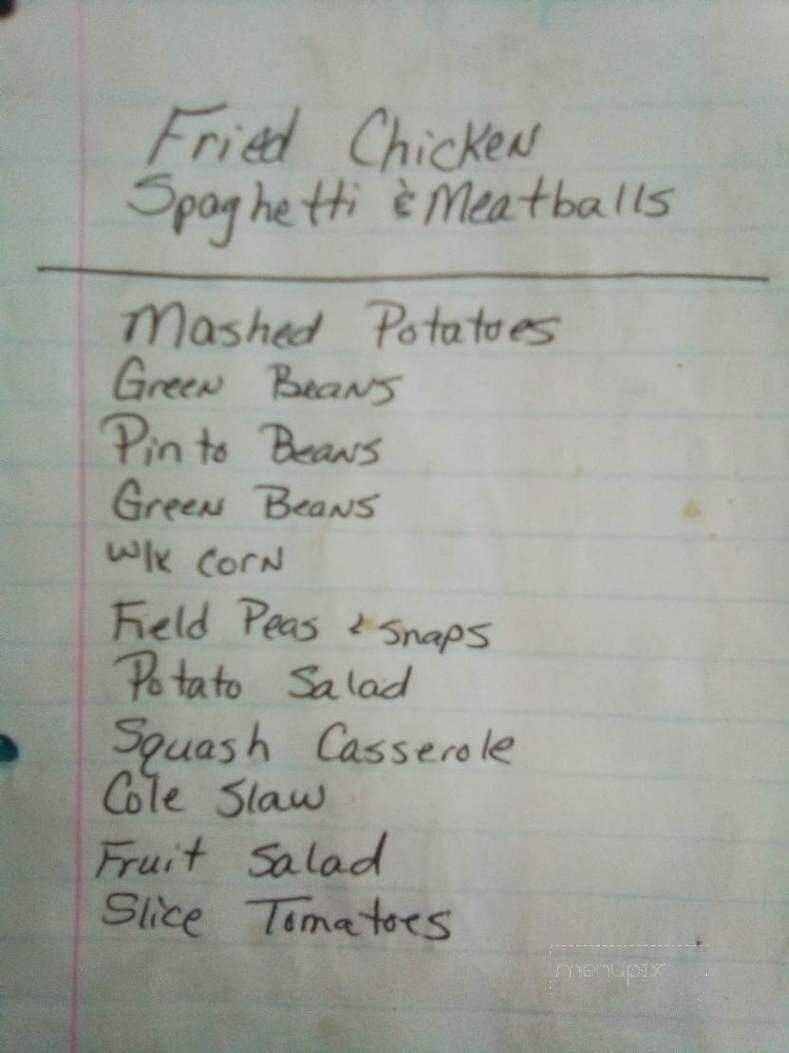 Fried Chicken
Spaghetti & Meatballs
Mashed Potatoes
Green Beans
Pinto Beans
Green Beans
W/K Corn
Field Peas & Snaps
Potato Salad
Squash Casserole
Cole Slaw
Fruit Salad
Slice Tomatoes
menupix